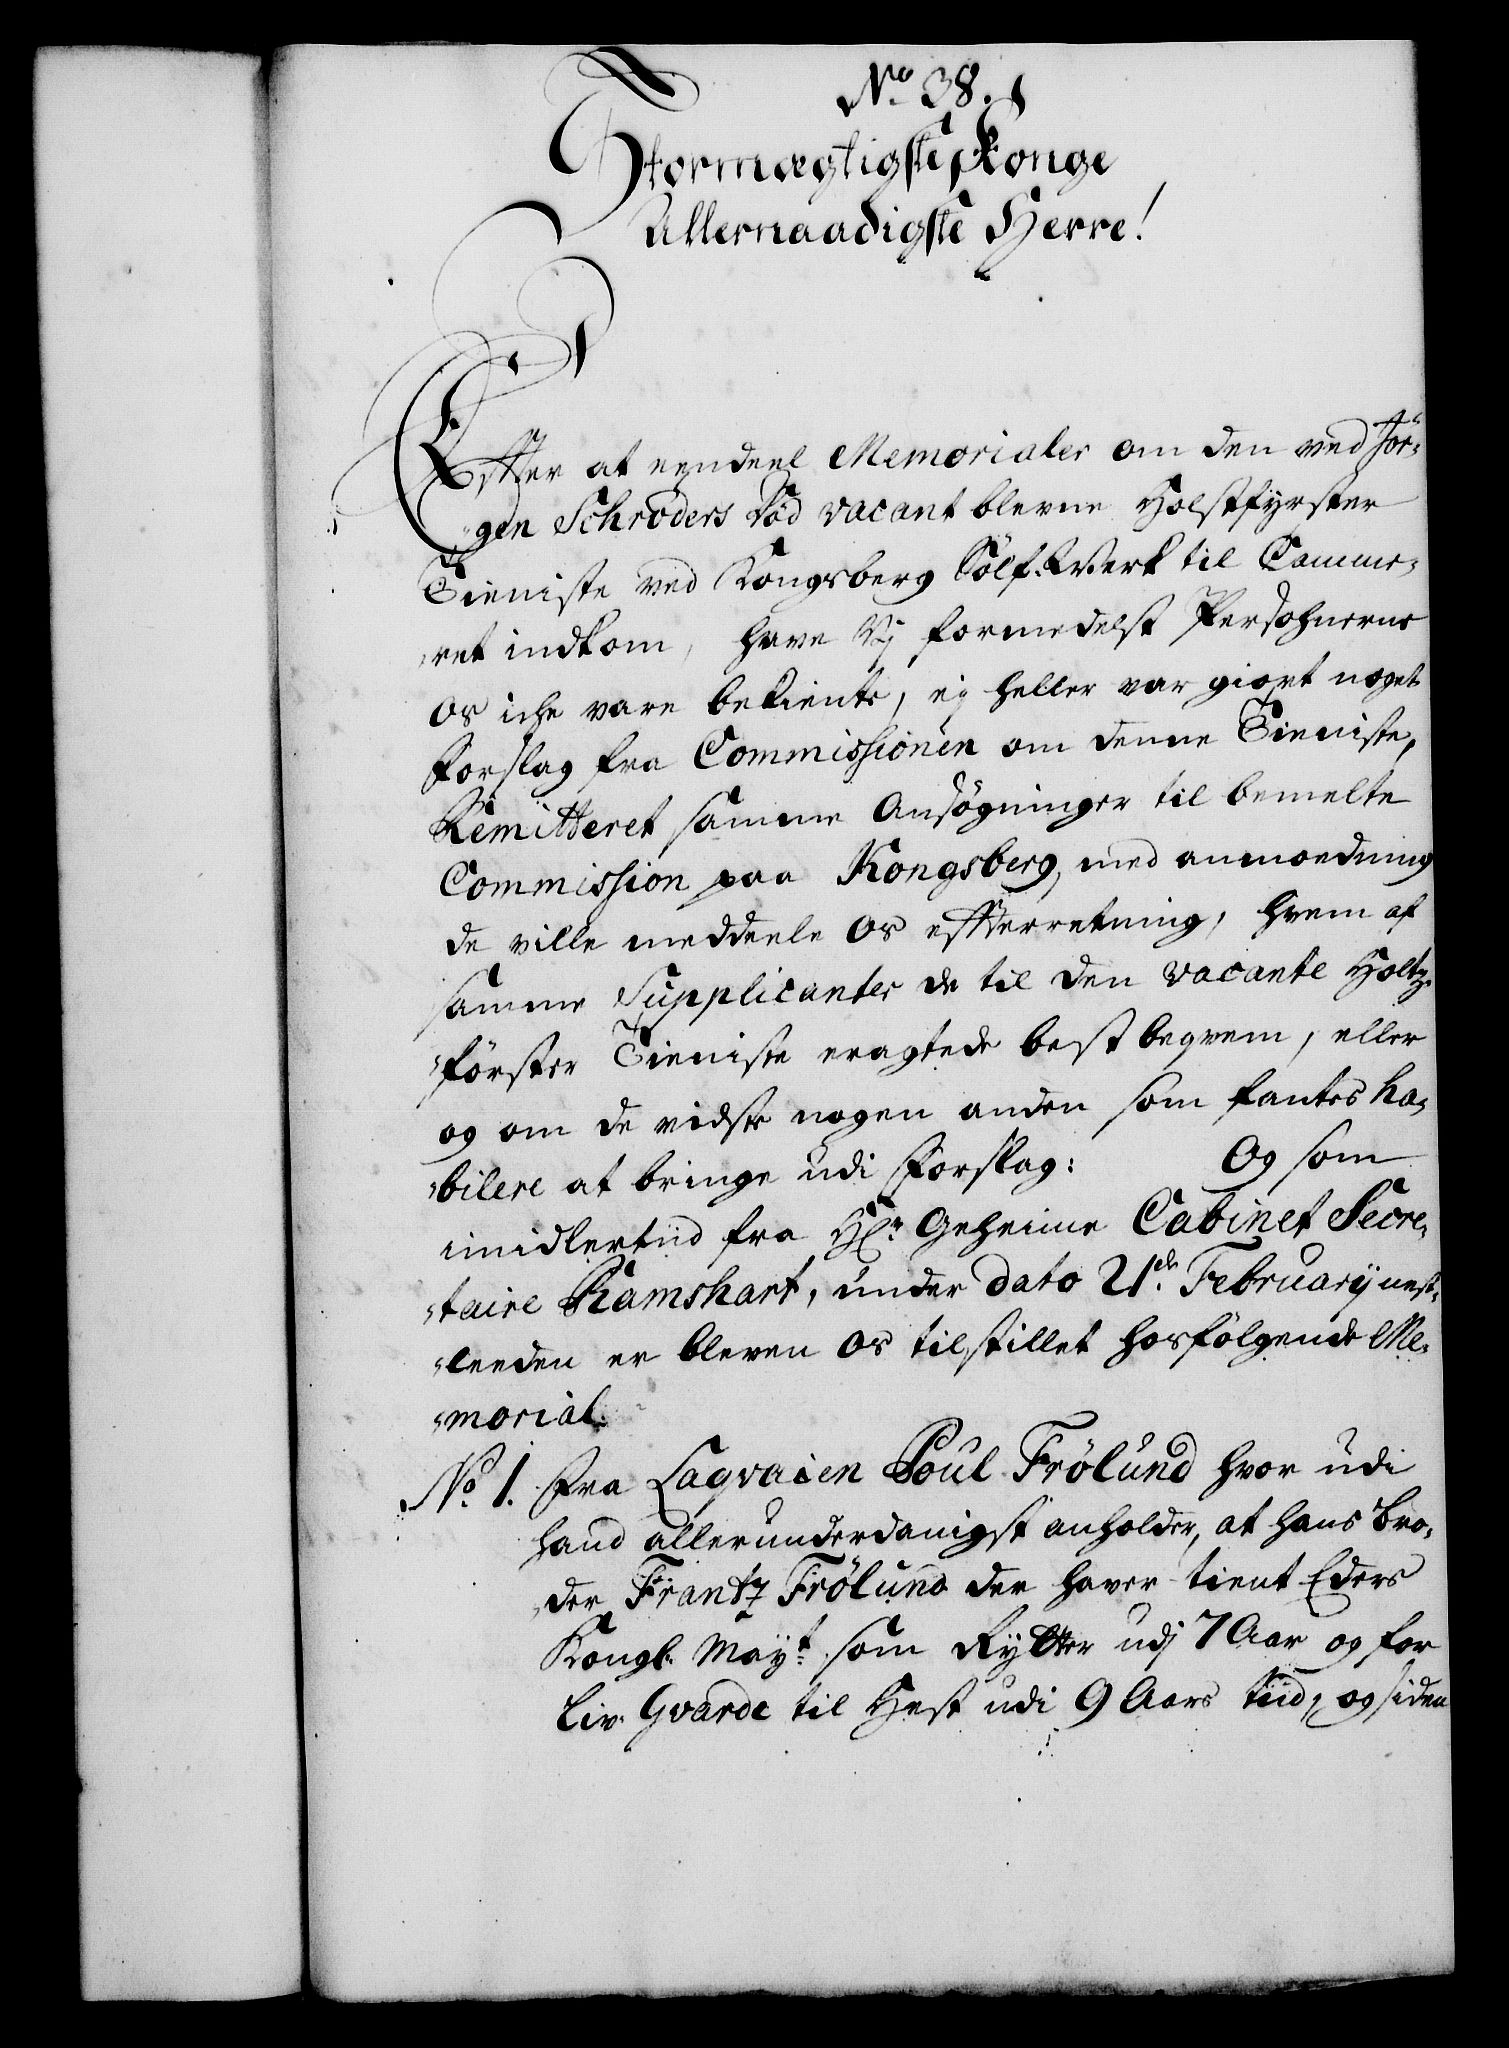 No 38.
Stormægtigste Konge
Allernaadigste Herre!
Effter at eendeel Memorialer om den ved Jör-
-gen Schröders Död vacant blevne Holtsfyrster
Tieniste ved Kongsberg Sölf-Werk til Camme-
-ret indkom, have Vj formedelst Persohnerne
os iche vare bekiente, ej heller var giort noget
Forslag fra Commissionen om denne Tieniste,
Remitteret samme Ansögninger til bemelte
Commission paa Kongsberg, med anmoedning
de ville meddeele Os effterretning, hvem af
samme Supplicanter de til den vacante Holtz-
-förster Tieniste eragtede best beqvem, eller
og om de vidste nogen anden som fantes ha-
-bilere at bringe udi Forslag: Og som
imidlertiid fra Hr. Geheime Cabinet Secre-
-taire Ramshart, under dato 21de Februarij nest-
-leeden er bleven Os tilstillet hosfölgende Me-
-morial.
No 1. Fra Laqvaien Poul Frölund hvor udi
hand allerunderdanigst anholder, at hans bro-
-der Frantz Frölund der haver tient Eders
Kongl. Mayt. som Rytter udj 7 Aar og for
Liv-Gvarde til Hest udi 9 Aars tiid, og siden